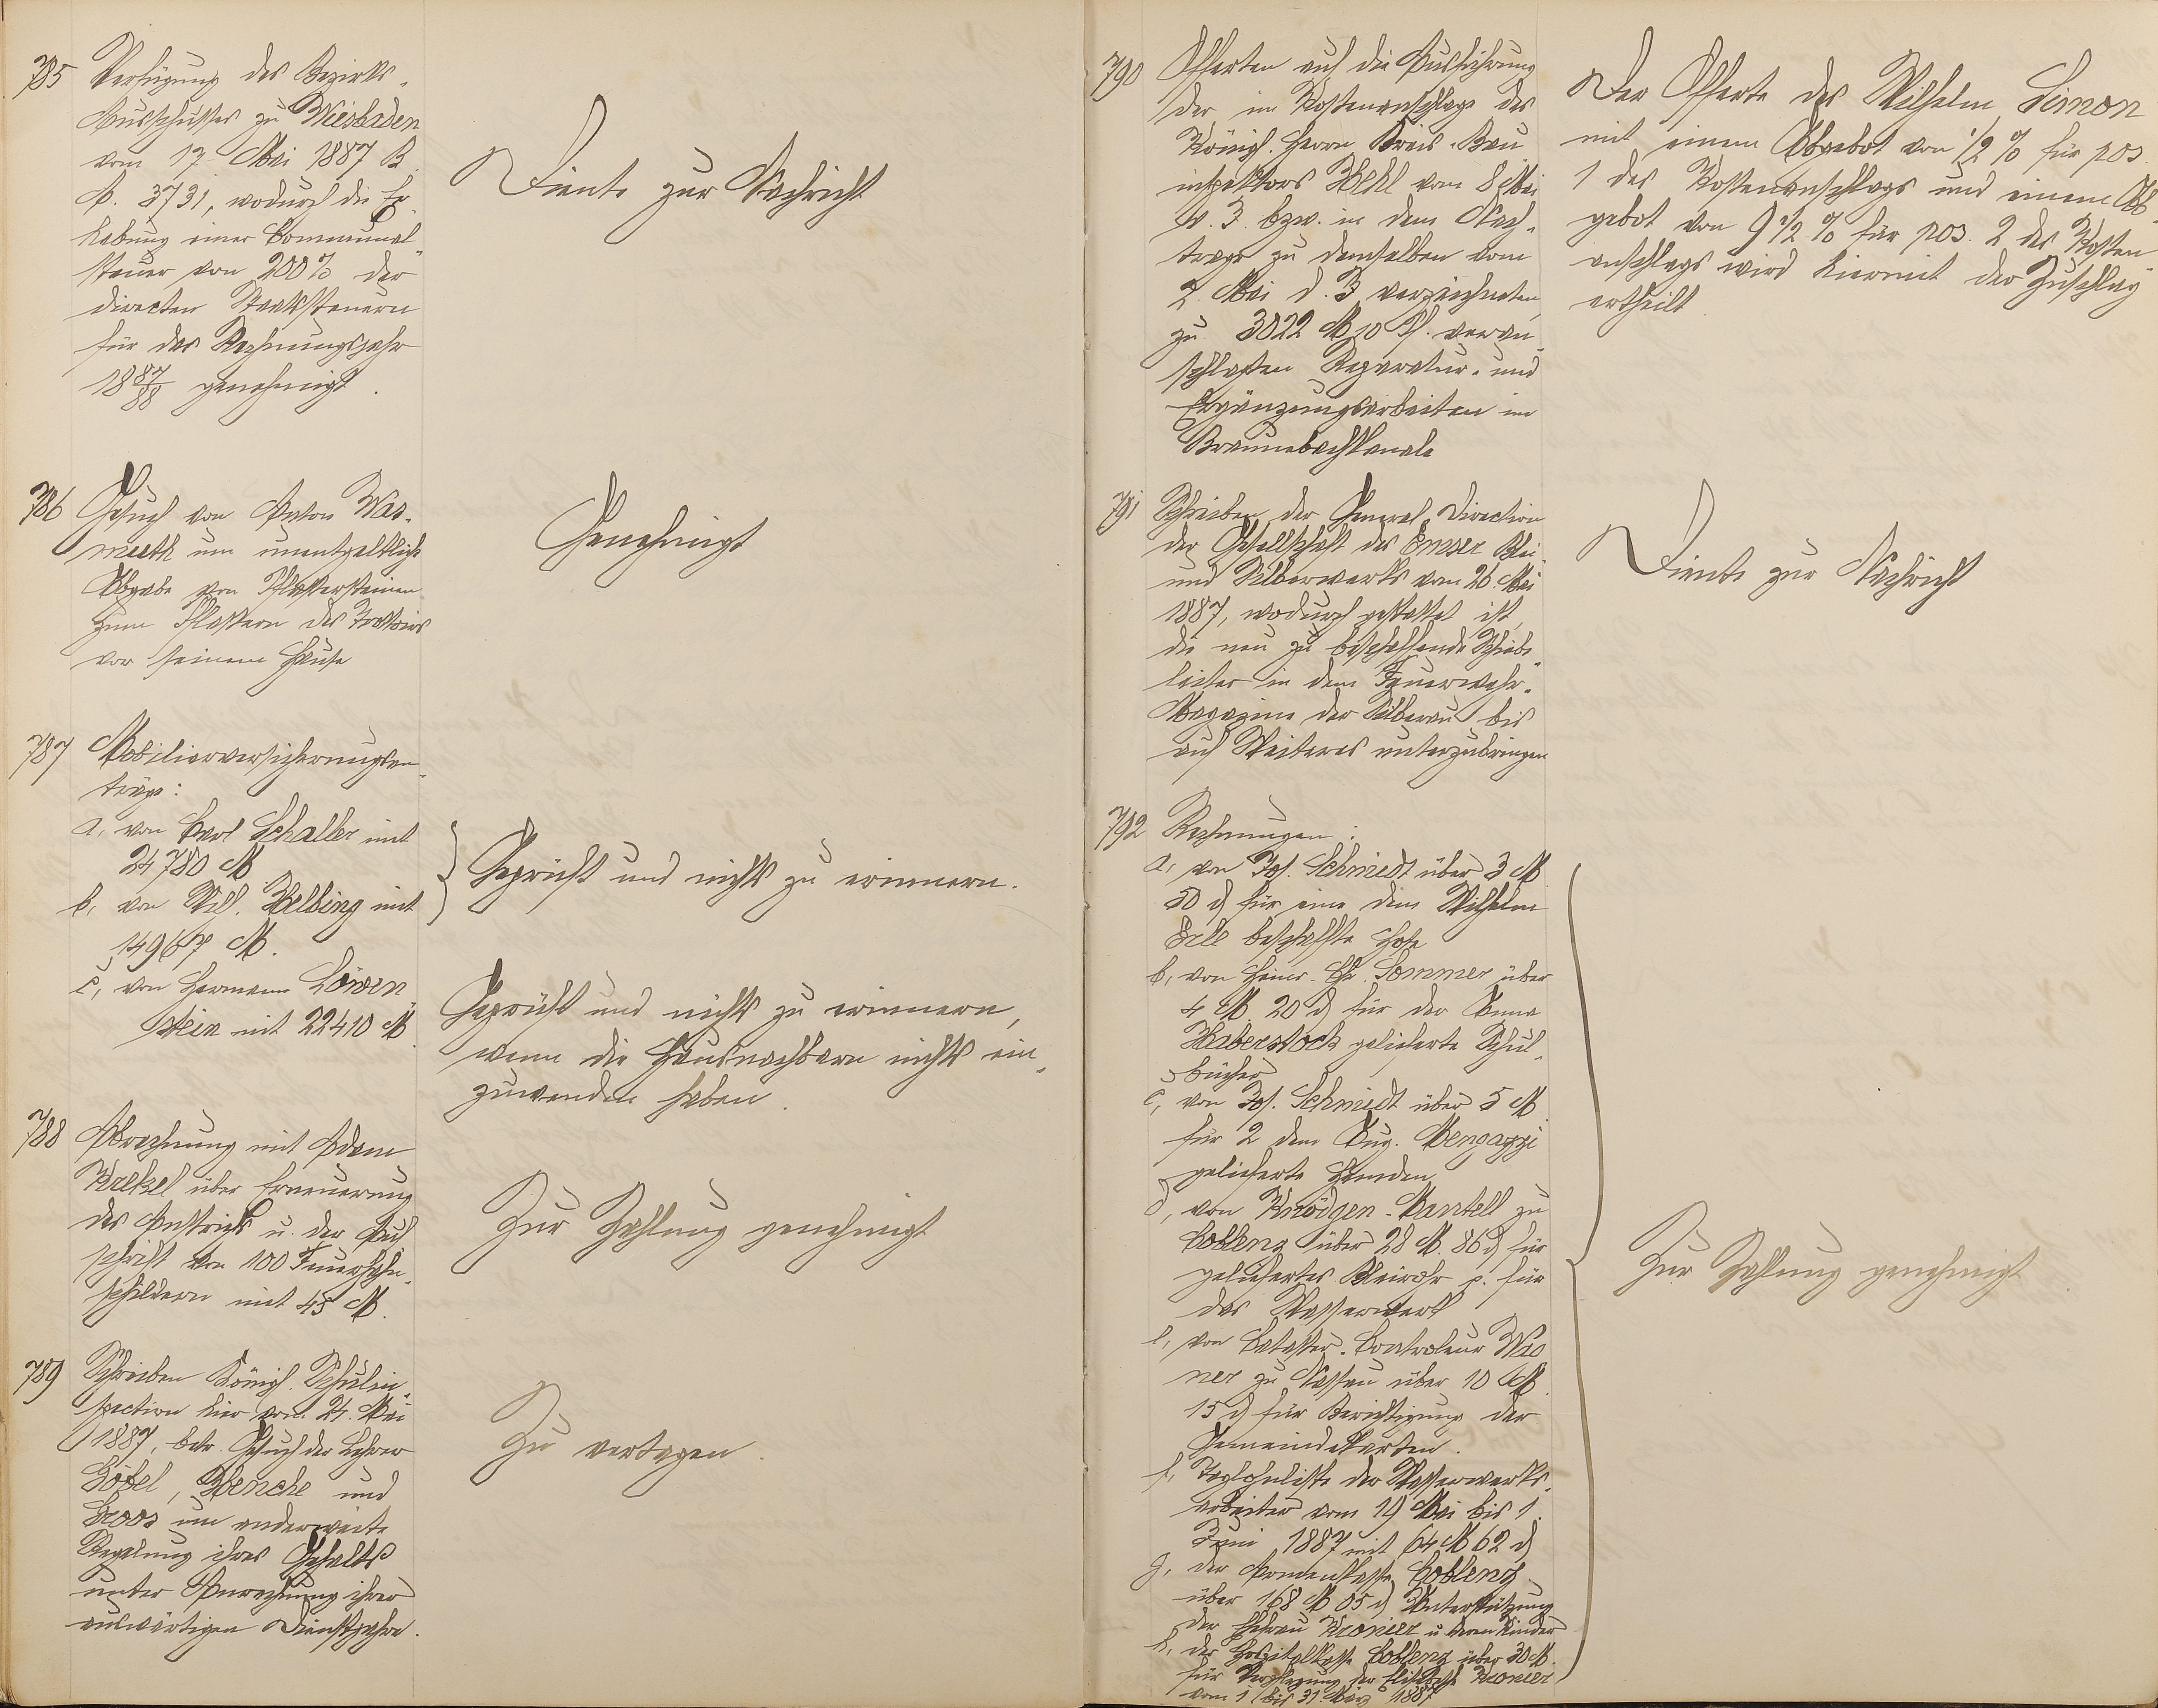 785 Verfügung des Bezirks-
Ausschusses zu Wiesbaden
vom 17 Mai 1887 B.
A. 3731, wodurch die Er-
hebung einer Communal-
steuer von 200% der
directen Staatssteuern
für das Rechnungsjahr
18 87/88 genehmigt.
Diente zur Nachricht
786 Gesuch von Anton Was-
muth um unentgeltliche
Abgabe von Pflastersteinen
zum Pflastern des Trottoirs
vor seinem Hause
Genehmigt
787 Mobiliarversicherungsan-
träge:
a, von Carl Schaller mit
24780 M
b, von Wilh. Helbing mit
14967 M.
Geprüft und nichts zu erinnern.
c, von Hermann Löwen
stein mit 22410 M
Geprüft und nichts zu erinnern,
wenn die Hausnachbarn nichts ein-
zuwenden haben.
788 Abrechnung mit Adam
Krekel über Erneuerung
des Anstrichs u. der Auf
schrift von 100 Feuerhahn-
schildern mit 45 M.
Zur Zahlung genehmigt
789 Schreiben Königl. Schulin-
spection hier vom 24. Mai
1887, betr. Gesuch der Lehrer
Göbel, Henche und
Groos um anderweite
Regelung ihres Gehalts
unter Anrechnung ihrer
auswärtigen Dienstjahre.
Zu vertagen.
790 Offerten auf die Ausführung
der im Kostenanschlage des
Königl. Herrn Kreis-Bau
inspektors Hehl vom 8 Mai
v. J. bzw. in dem Nach-
trage zu demselben vom
2. Mai d. J. verzeichneten,
zu 3022 M 10 Pf. veran-
schlagten Reparatur- und
Ergänzungsarbeiten im
Braunebachkanale
Der Offerte des Wilhelm Linon
mit einem Abgebot von 1/2 % für pos.
1 des Kostenanschlags und einem Ab-
gebot von 9 1/2 % für pos. 2 des Kosten-
anschlags wird hiermit der Zuschlag
ertheilt
791 Schreiben der General Direction
der Gesellschaft des Emser Blei-
und Silberwerks vom 26. Mai
1887, wodurch gestattet ist,
die neu zu beschaffende Schiebe-
leiter in dem Feuerwehr-
Magazine der Silberau bis
auf Weiteres unterzubringen
Diente zur Nachricht
792 Rechnungen:
a, von Jos. Schmidt über 3 M
50 d für eine dem Wilhelm
Erle beschaffte Hose
b, von Heinr. Chr. Sommer über
4 M 20 d für der Anna
Haberstock gelieferte Schul-
bücher
c, von Jos. Schmidt über 5 M
für 2 dem Aug. Mengazzi
gelieferte Hemden
d, von Knödgen-Mantell zu
Coblenz über 28 M. 86 d für
geliefertes Bleirohr p. für
das Wasserwerk
e, von Cataster-Controleur
zu Nassau über 10 M
15 d für Berichtigung der
Gemeindekarten.
f, Taglohnliste der Wasserwerks-
arbeiter vom 19 Mai bis 1.
Juni 1887 mit 64 M 62 d
g, der Armenkasse Coblenz
über 168 M 05 d Unterstützung
der Ehefrau Kronier u. deren Kinder
h, der Hospitalkasse Coblenz über 30 M.
für Verpflegung der Elisabeth Kronier
vom 1 bis 31. März 1887
Zur Zahlung genehmigt